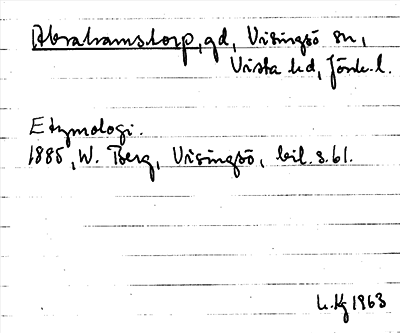 Abrahamstorp, gd, Visingsö sn,
Vista hd, Jönk. l.
Etymologi.
1885, W. Berg, Visingsö, bil. s. 61.
L. Hg 1963